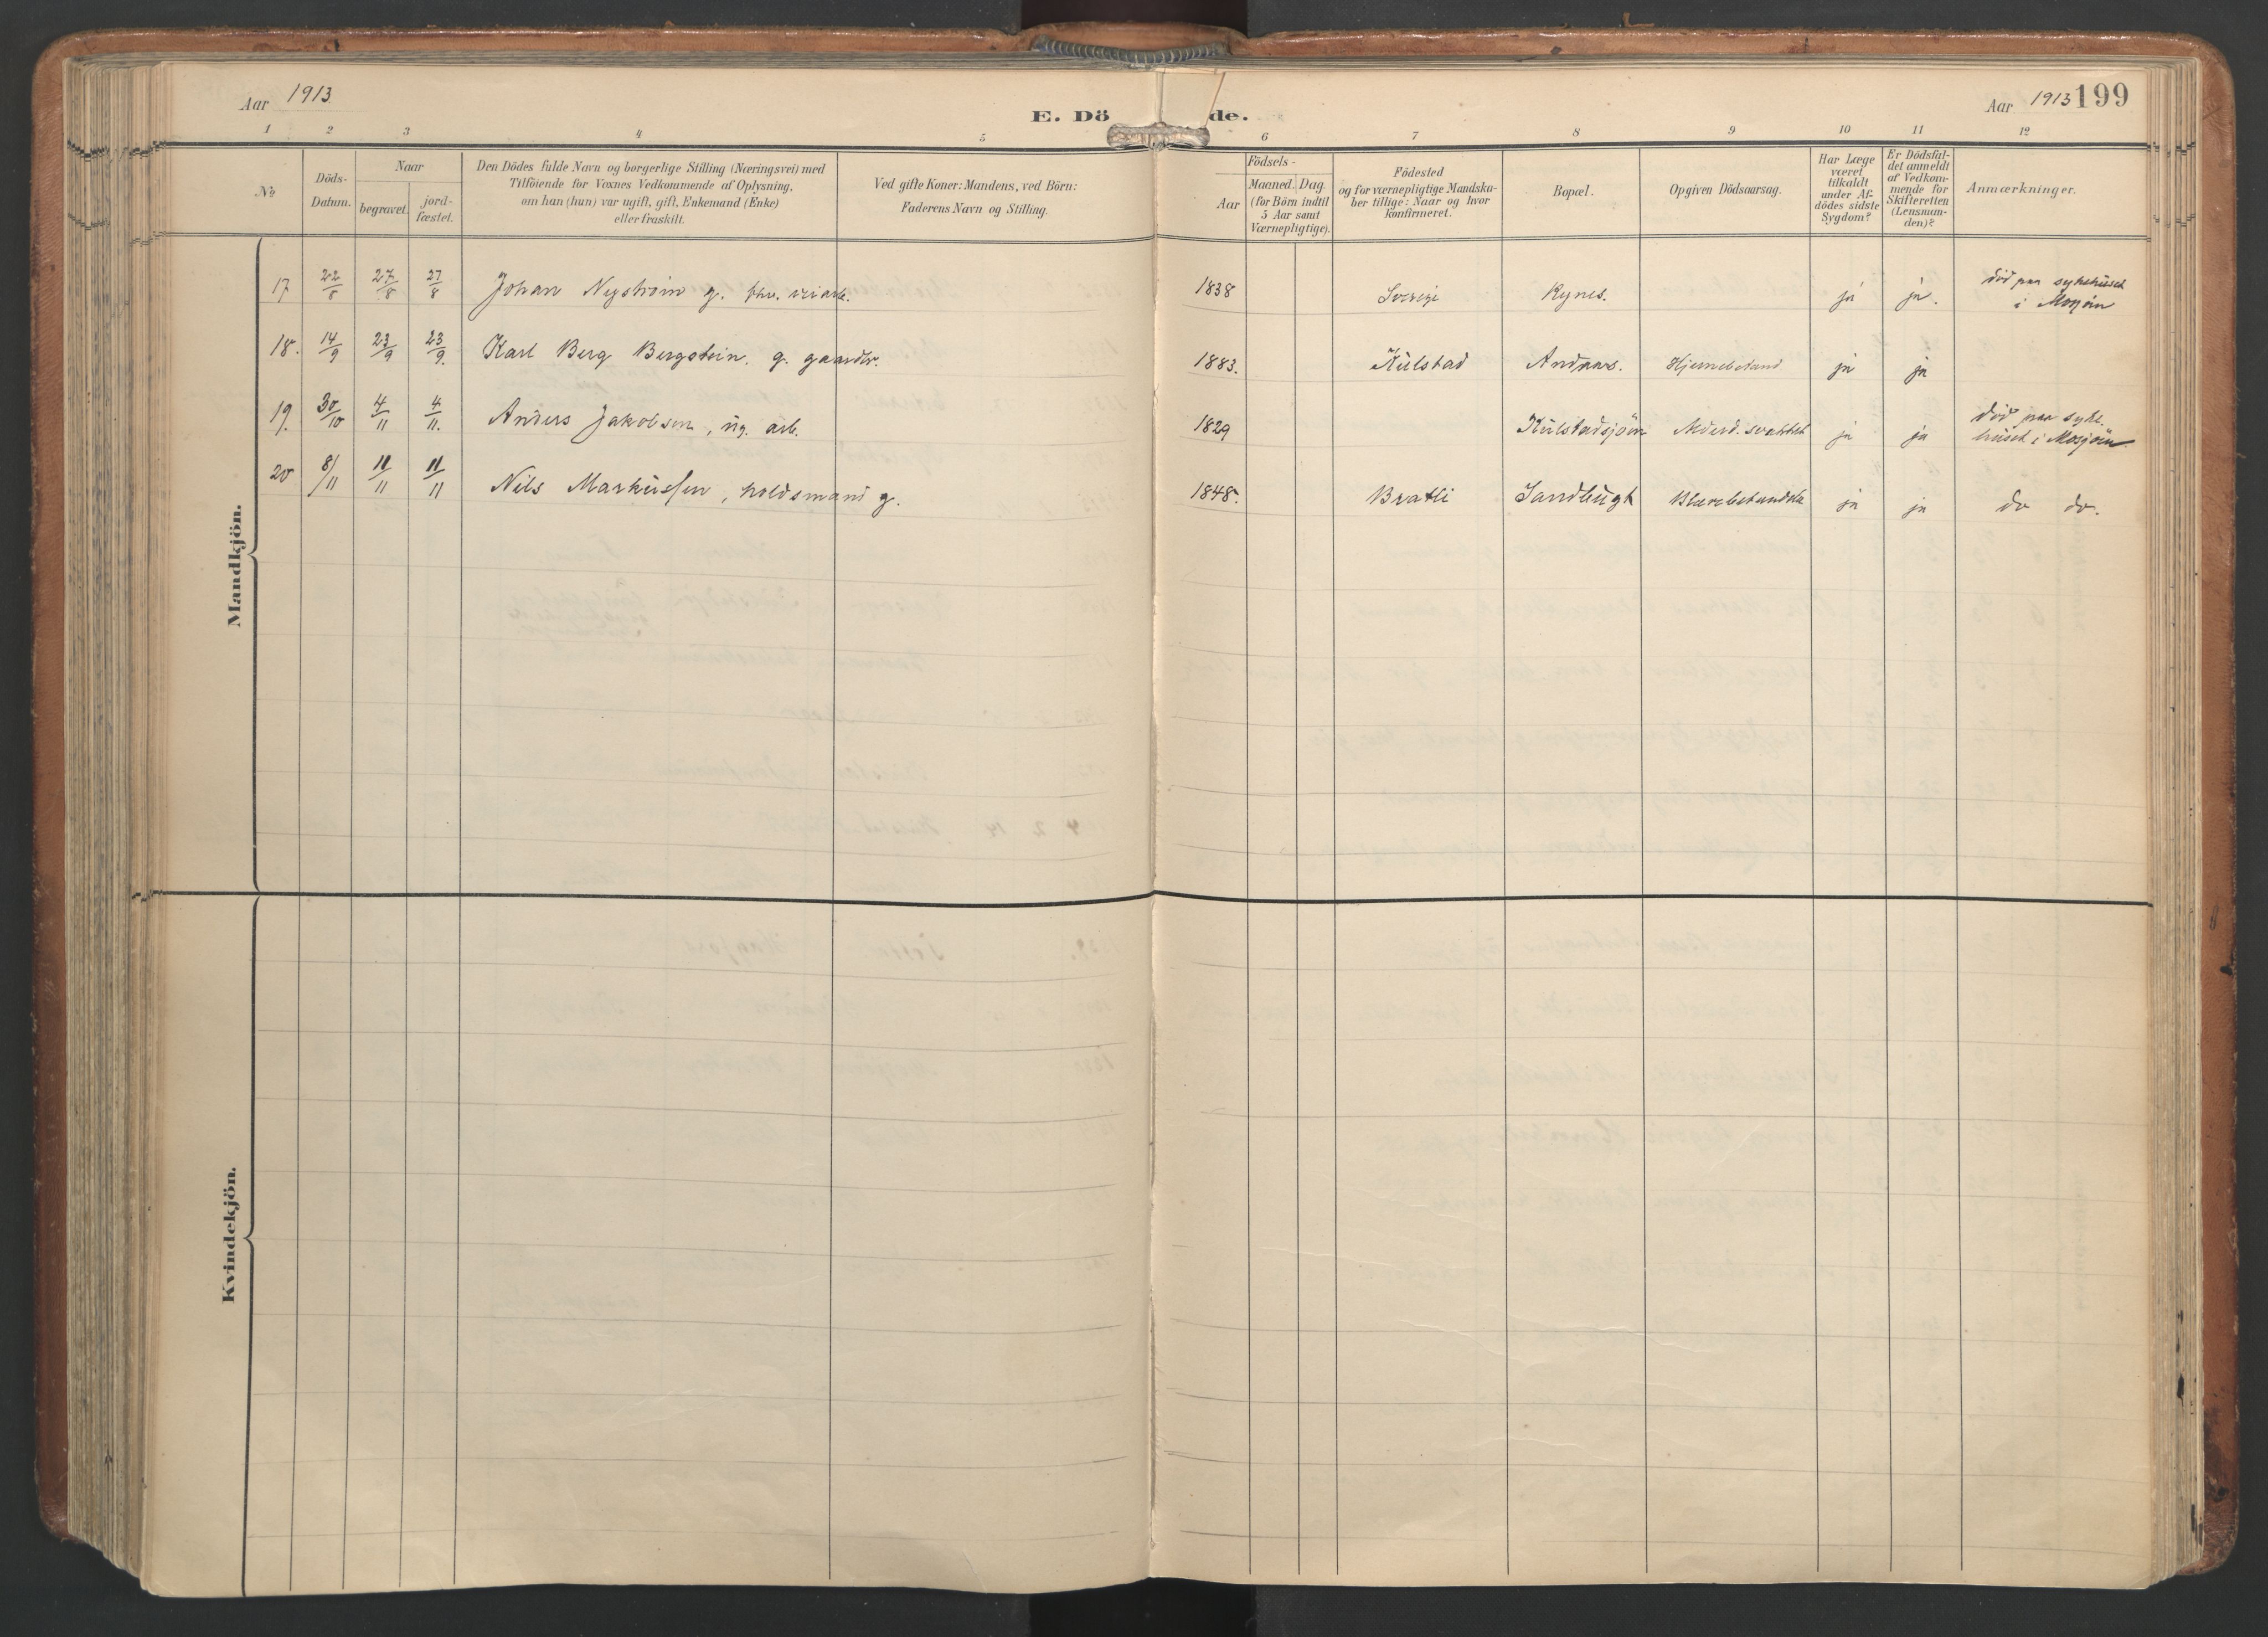 Aar 1913
E. Dö
de.
Aar 1913 199
1 2 3 4 5 6 7 8 9 10 11 12
No
Döds-
Datum.
Naar
begravet.
jord-
fæstet.
Den Dödes fulde Navn og borgerlige Stilling (Næringsvei) med
Tilföiende for Voxnes Vedkommende af Oplysning,
om han (hun) var ugift, gift, Enkemand (Enke)
eller fraskilt.
Ved gifte Koner: Mandens, ved Börn:
Faderens Navn og Stilling.
Födsels-
Aar
Maaned. Dag.
(for Börn indtil
5 Aar samt
Værnepligtige).
Födested
og for værnepligtige Mandska-
ber tillige: Naar og hvor
konfirmeret.
Bopæl.
Opgiven Dödsaarsag.
Har Læge
været
tilkaldt
under Af-
dödes sidste
Sygdom?
Er Dödsfal-
det anmeldt
af Vedkom-
mende for
Skifteretten
(Lensman-
den)?
Anmærkninger.
Mandkjön.
17 22/8 27/8 27/8 Johan Nyström g. 1838 Sverige Rynes. ja ja. död paa sykehuset
i Mosjøen
18. 14/9 23/9 23/9. Karl Berg Bergstein. g. gaardbr. 1883. Kulstad Andaas. Hjernebetænd ja ja
19. 30/10 4/11 4/11. Anders Jakobsen, ug. arb. 1829 Kulstadsjöen ja ja död paa syke-
huset i Mosjöen
20 8/11 11/11 11/11 Nils Markussen, holdsmand g. 1848. Bratli Sandbugt Blærebetændelse ja ja do do.
Kvindekjön.